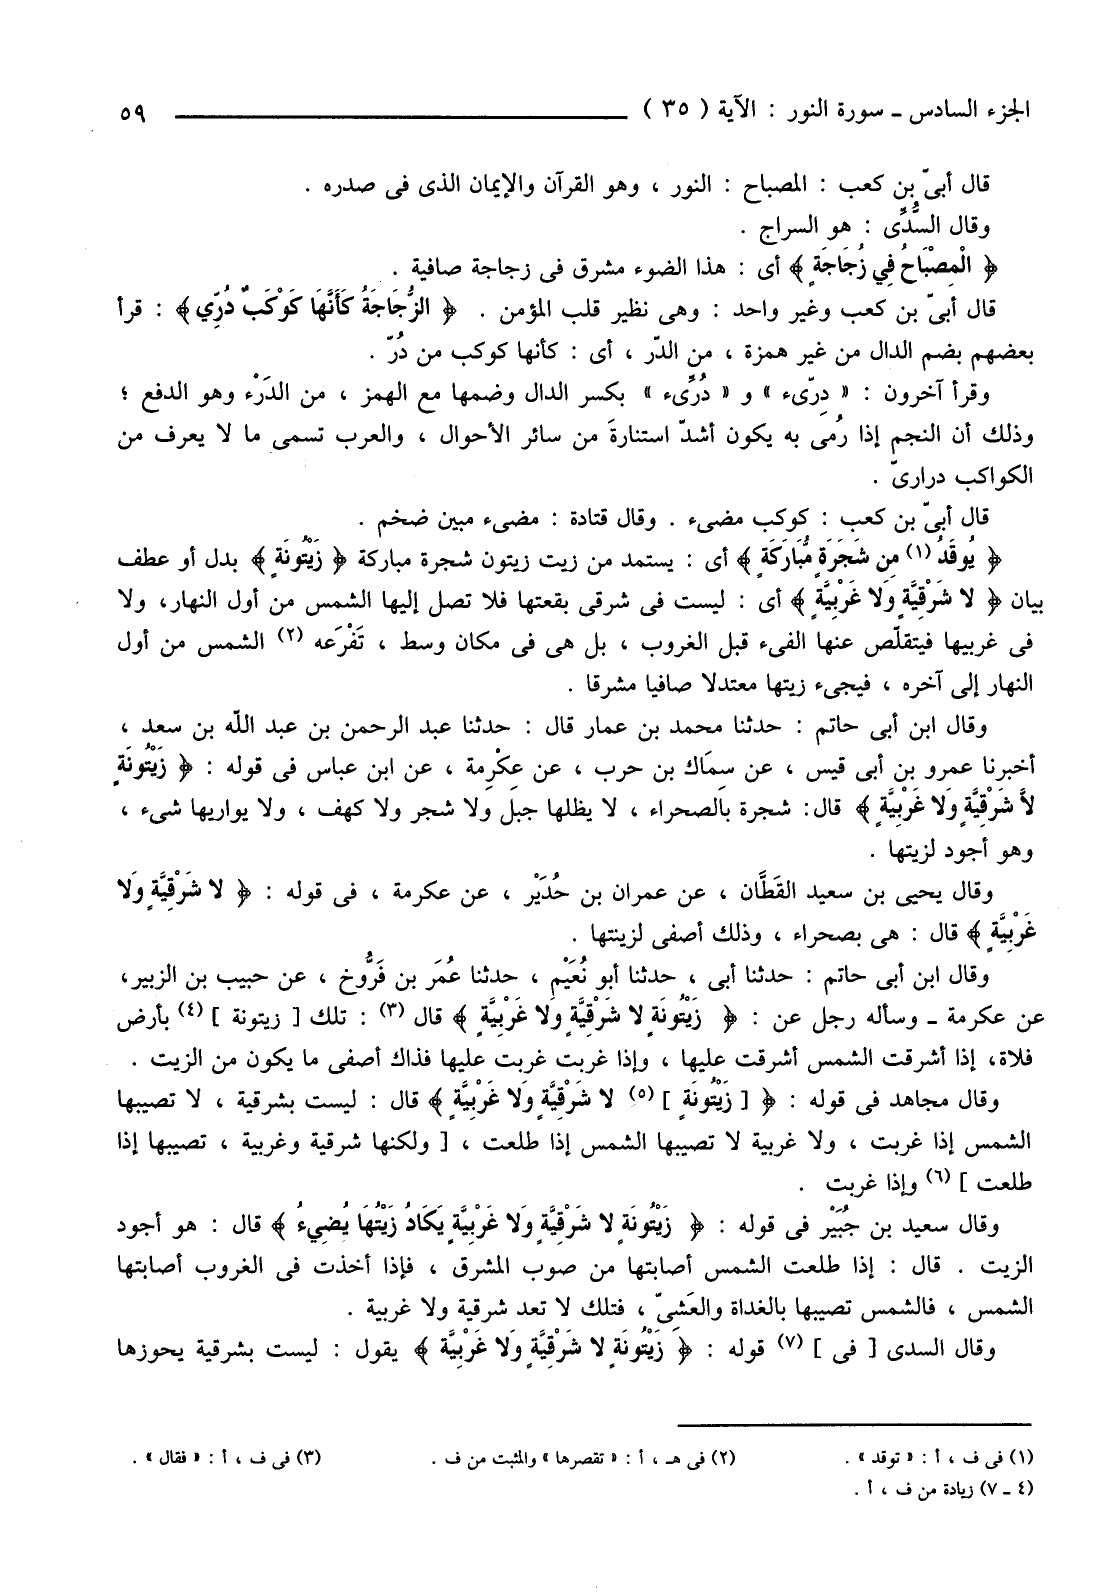 الجزء السادس ـ سورة النور : الآية ( ٣٥ ) ٥٩
قال أبىّ بن كعب : المصباح : النور ، وهو القرآن والإيمان الذى فى صدره .
وقال السُّدِّى : هو السراج .
﴿ الْمِصْبَاحُ فِي زُجَاجَةٍ ﴾ أى : هذا الضوء مشرق فى زجاجة صافية .
قال أبىّ بن كعب وغير واحد : وهى نظير قلب المؤمن . ﴿ الزُّجَاجَةُ كَأَنَّهَا كَوْكَبٌ دُرِّي ﴾ : قرأ
بعضهم بضم الدال من غير همزة ، من الدّر ، أى : كأنها كوكب من دُرّ .
وقرأ آخرون : « دِرّىء » و « دُرِّىء » بكسر الدال وضمها مع الهمز ، من الدَرْء وهو الدفع ؛
وذلك أن النجم إذا رُمى به يكون أشدّ استنارةَ من سائر الأحوال ، والعرب تسمى ما لا يعرف من
الكواكب درارىّ .
قال أبىّ بن كعب : كوكب مضىء . وقال قتادة : مضىء مبين ضخم .
﴿ يُوقَدُ (١) مِن شَجَرَةٍ مُّبَارَكَةٍ ﴾ أى : يستمد من زيت زيتون شجرة مباركة ﴿ زَيْتُونَةٍ ﴾ بدل أو عطف
بيان ﴿ لا شَرْقِيَّةٍ وَلا غَرْبِيَّةٍ ﴾ أى : ليست فى شرقى بقعتها فلا تصل إليها الشمس من أول النهار، ولا
فى غربيها فيتقلّص عنها الفىء قبل الغروب ، بل هى فى مكان وسط ، تَفْرَعه (٢) الشمس من أول
النهار إلى آخره ، فيجىء زيتها معتدلا صافيا مشرقا .
وقال ابن أبى حاتم : حدثنا محمد بن عمار قال : حدثنا عبد الرحمن بن عبد اللّه بن سعد ،
أخبرنا عمرو بن أبى قيس ، عن سمَاك بن حرب ، عن عكْرِمة ، عن ابن عباس فى قوله : ﴿ زَيْتُونَةٍ
لاَّ شَرْقِيَّةٍ وَلا غَرْبِيَّةٍ ﴾ قال: شجرة بالصحراء ، لا يظلها جبل ولا شجر ولا كهف ، ولا يواريها شىء ،
وهو أجود لزيتها .
وقال يحيى بن سعيد القَطَّان ، عن عمران بن حُدَيْر ، عن عكرمة ، فى قوله : ﴿ لا شَرْقِيَّةٍ وَلا
غَرْبِيَّةٍ ﴾ قال : هى بصحراء ، وذلك أصفى لزينتها .
وقال ابن أبى حاتم : حدثنا أبى ، حدثنا أبو نُعَيْم ، حدثنا عُمَر بن فَرُّوخ ، عن حبيب بن الزبير،
عن عكرمة ـ وسأله رجل عن : ﴿ زَيْتُونَةٍ لا شَرْقِيَّةٍ وَلا غَرْبِيَّةٍ ﴾ قال (٣) : تلك [ زيتونة ] (٤) بأرض
فلاة، إذا أشرقت الشمس أشرقت عليها ، وإذا غربت غربت عليها فذاك أصفى ما يكون من الزيت .
وقال مجاهد فى قوله : ﴿ [ زَيْتُونَةٍ ] (٥) لا شَرْقِيَّةٍ وَلا غَرْبِيَّةٍ ﴾ قال : ليست بشرقية ، لا تصيبها
الشمس إذا غربت ، ولا غربية لا تصيبها الشمس إذا طلعت ، [ ولكنها شرقية وغربية ، تصيبها إذا
طلعت ] (٦) وإذا غربت .
وقال سعيد بن جُبَيْر فى قوله : ﴿ زَيْتُونَةٍ لا شَرْقِيَّةٍ وَلا غَرْبِيَّةٍ يَكَادُ زَيْتُهَا يُضِيءُ ﴾ قال : هو أجود
الزيت . قال : إذا طلعت الشمس أصابتها من صوب المشرق ، فإذا أخذت فى الغروب أصابتها
الشمس ، فالشمس تصيبها بالغداة والعَشِىّ ، فتلك لا تعد شرقية ولا غربية .
وقال السدى [ فى ] (٧) قوله : ﴿ زَيْتُونَةٍ لا شَرْقِيَّةٍ وَلا غَرْبِيَّةٍ ﴾ يقول : ليست بشرقية يحوزها
(١) فى ف ، أ : « توقد » . (٢) فى هـ ، أ : « تقصرها » والمثبت من ف . (٣) فى ف ، أ : « فقال » .
(٤ ـ ٧) زيادة من ف ، أ .